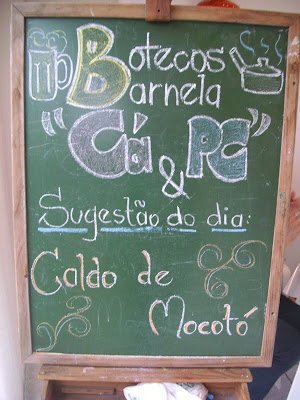 Botecos
Barnela
"Cá & PG"
Sugestão do dia:
Caldo de
Mocotó